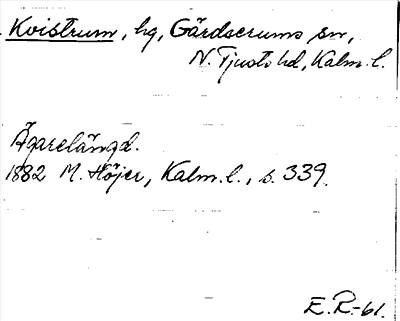 Kvistrum, hg, Gärdserums sn,
N. Tjusts hd, Kalm. l.
Ägarelängd.
1882 M. Höjer, Kalm. l., s. 339.
E. R.-61.